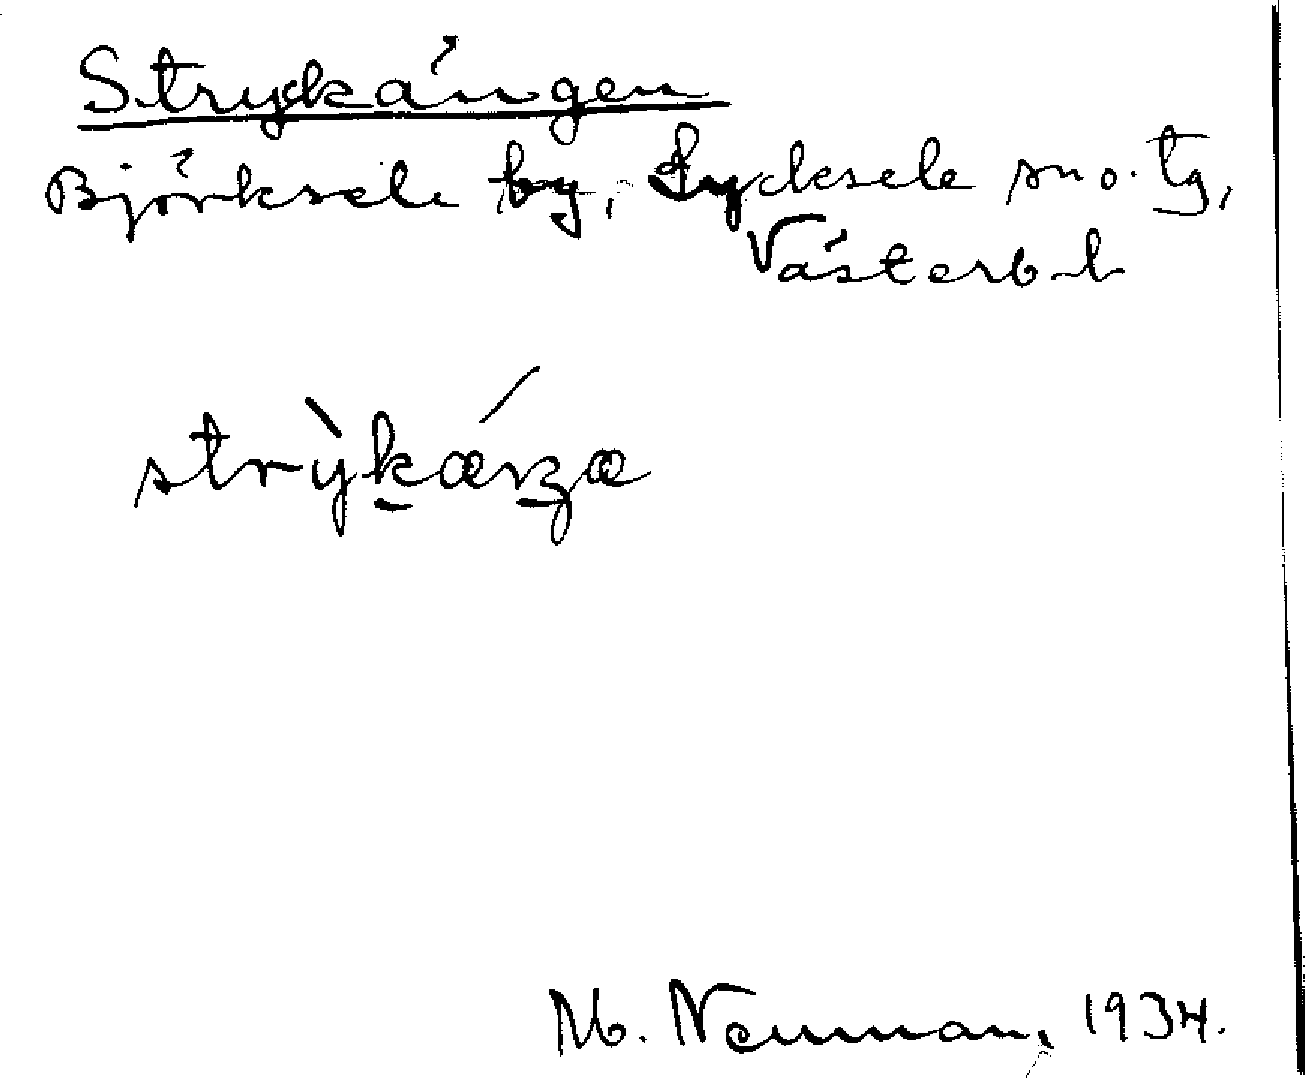 Stryckängen
Björksele by, Lycksele sn o. tg,
Västerb. l.
M. Neuman, 1934.